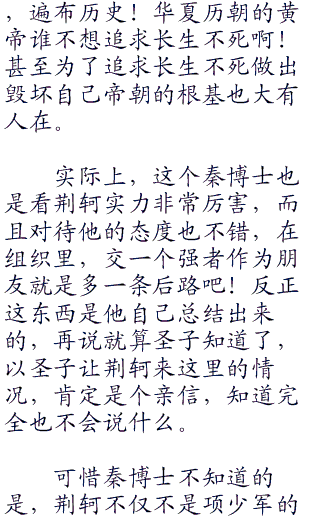 ，遍布历史！华夏历朝的黄
帝谁不想追求长生不死啊！
甚至为了追求长生不死做出
毁坏自己帝朝的根基也大有
人在。
实际上，这个秦博士也
是看荆轲实力非常厉害，而
且对待他的态度也不错，在
组织里，交一个强者作为朋
友就是多一条后路吧！反正
这东西是他自己总结出来
的，再说就算圣子知道了，
以圣子让荆轲来这里的情
况，肯定是个亲信，知道完
全也不会说什么。
可惜秦博士不知道的
是，荆轲不仅不是项少军的